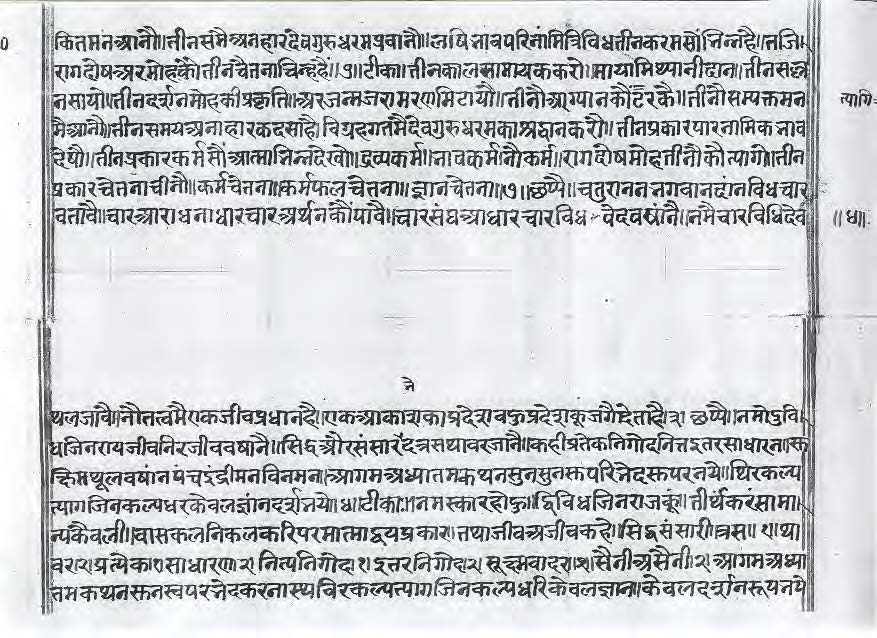 कितमनआनौ॥तीनसमैअनहारदेवगुरुधरमप्रवानौ॥ भावपरिनांमित्रिविधतीनकरमसोंभिन्नहै॥तजि।
रागदोषअरमोहकोंतीनचेतनाचिन्हहैं॥१॥टीका॥तीनकालसामायककरो॥मायामिथ्यानीदान॥तीनसल्ल
नसायो॥तीनदर्शनमोहकीप्रकृति॥अरजन्मजरामरणमिटायौ॥तीनौ सम्यक्तमन
मैआनौ॥तीनसमयअनाहारकदसाहै।विग्रहगतमैदेवगुरुधरमकाश्रद्धानकरौ॥तीनप्रकारपारनामिकभाव
तीनप्रकारकर्मसौंआत्माभिन्नदेखो॥द्रव्यकर्म॥भावकर्म॥नौकर्म॥रागदोषमोहतीनौकौत्यागो॥तीन
प्रकारचेतनाचीनौ॥कर्मचेतना॥कर्मफलचेतना॥ज्ञानचेतना॥१॥छप्पै॥चतुराननभगवानदांनविधचार
वतावै॥चारआराधनाधारचारअर्थनकौंपावै॥चारसंघआधारचारविध वेदवषांनै॥नमैचारविधिदेव
॥ध॥
नै
थलजांवै॥नौतत्वमैएकजीवप्रधानहै॥एकआकाशकाप्रदेश छप्पै॥नमोंदुवि।
धजिनरायजीवनिरजीववषानै॥सिद्धऔरसंसार थावरजानै॥कहीप्रतेकनिगोदनित्तइतरसाधारन॥सू
क्ष्मिमथूलवषांनपंचइंद्रीमनविनमन॥आगमअध्यातमकथनसुन थिरकल्प
त्यागजिनकल्पधरकेवलज्ञांनदर्शनमये॥ टीका॥नमस्कारहोऊ॥द्विविधजिनराजकूं॥तीर्थंकरसामा।
न्यकेवली॥ सकलनिकलकरिपरमात्माद्वयप्रकार॥तथाजीवअजीवकहै॥सिद्धसंसारी॥त्रस॥ था
वर प्रत्येक साधारण नित्यनिगोद इतरनिगोद सूक्ष्मवादर सैनीअसैनी आगमअध्या
तमकथन करनास्थविरकल्पत्यागजिनकल्पधरिकेवलज्ञान॥केवलदर्शनरूपनये